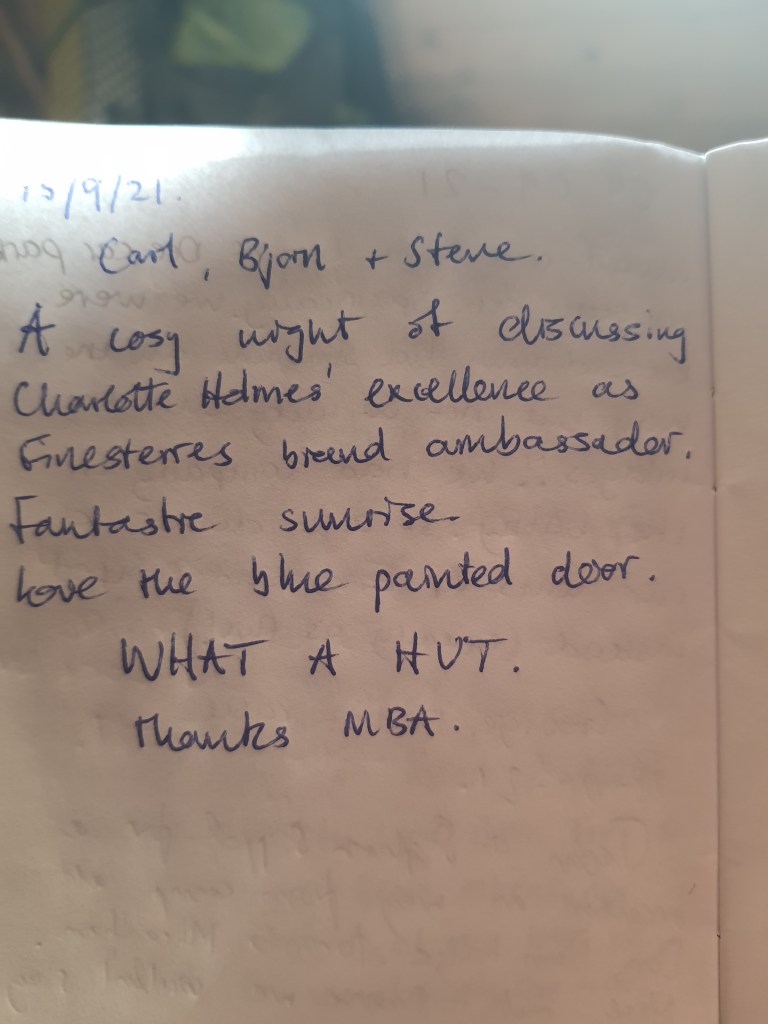 15/9/21.
Carl, Bjorn + Steve.
A cosy night of discussing
Charlotte Holmes' excellence as
Finesterres brand ambassador.
Fantastic sunrise.
Love the blue painted door.
WHAT A HUT.
Thanks MBA.